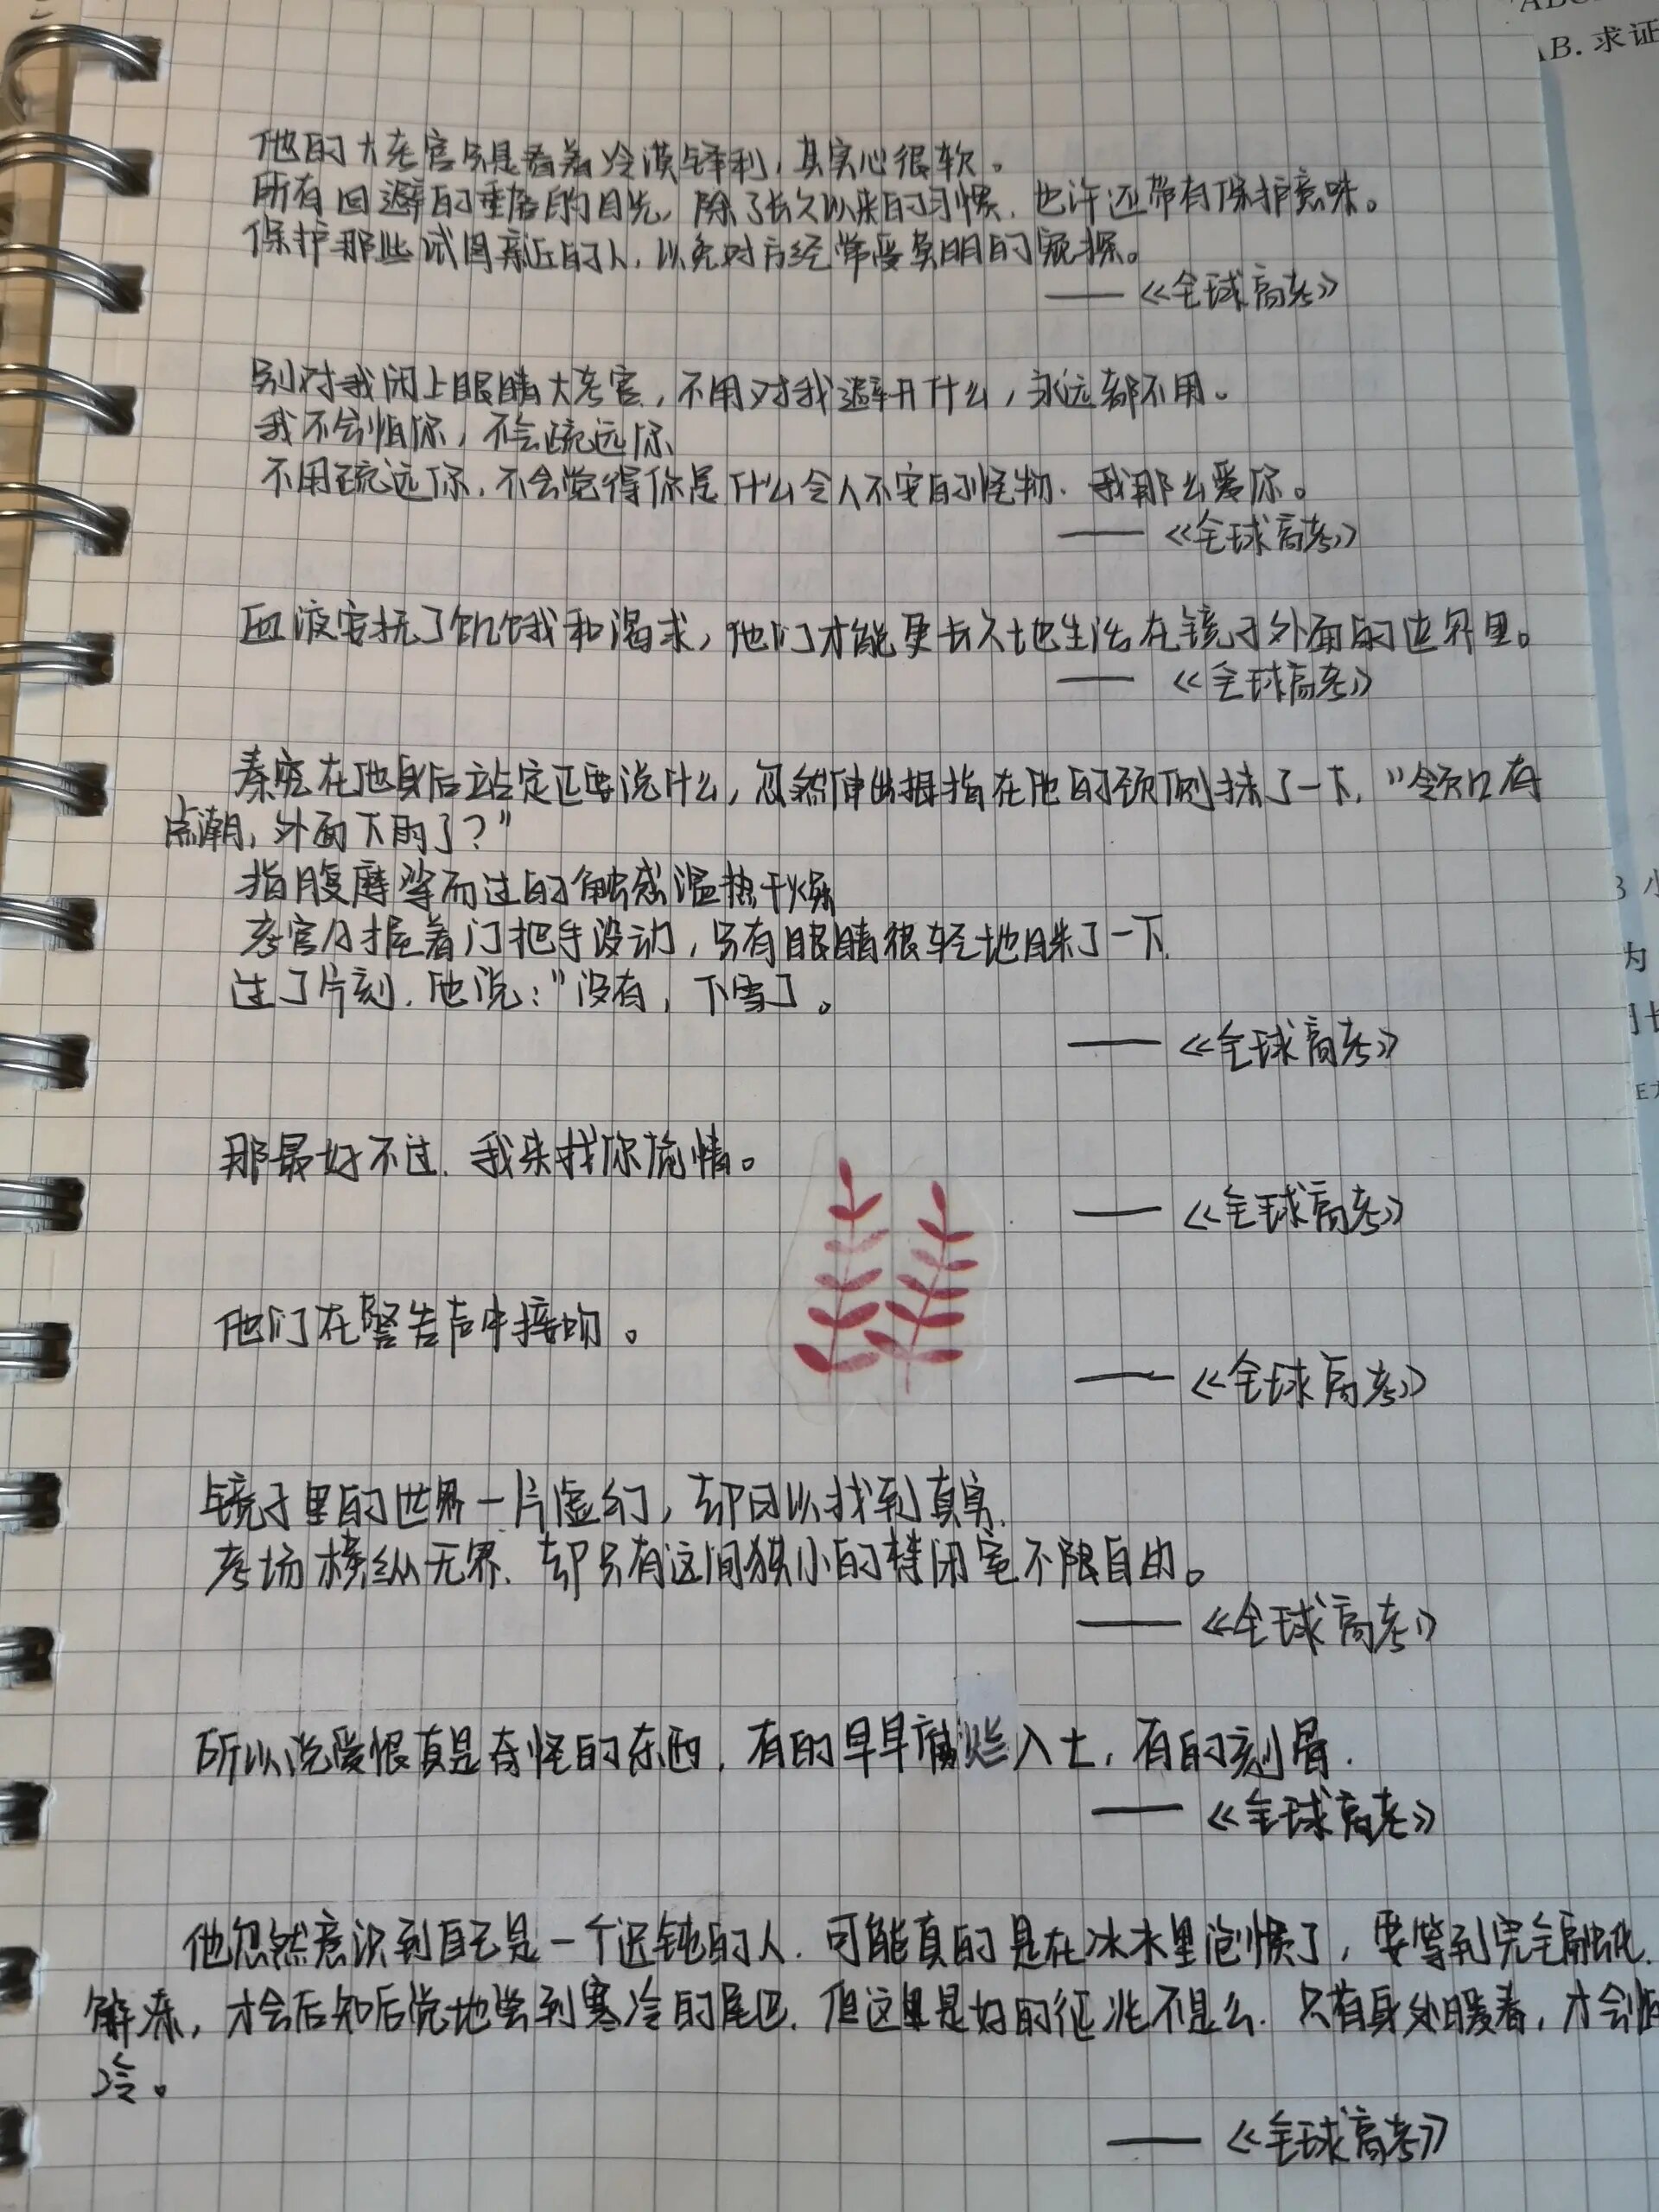 他的大考官只是看着冷漠锋利，其实心很软。
所有回避的垂落的目光，除了长久以来的习惯，也许还带有保护意味。
保护那些试图亲近的人，以免对方经常受莫明的窥探。
——《全球高考》
别对我闭上眼睛大考官，不用对我避开什么，永远都不用。
我不会怕你，不会疏远你
不用疏远你，不会觉得你是什么令人不安的怪物，我那么爱你。
——《全球高考》
血液安抚了饥饿和渴求，他们才能更长久地生活在镜子外面的世界里。
——《全球高考》
秦究在他身后站定正要说什么，忽然伸出拇指在他的颈侧抹了一下，"领口有
点潮，外面下雨了？"
指腹摩挲而过的触感温热干燥
考官A握着门把手没动，只有眼睛很轻地眯了一下
过了片刻，他说："没有，下雪了。
——《全球高考》
那最好不过，我来找你偷情。
——《全球高考》
他们在警告声中接吻。
——《全球高考》
镜子里的世界一片虚幻，却可以找到真实，
考场横纵无界，却只有这间狭小的禁闭室不限自由。
——《全球高考》
所以说爱恨真是奇怪的东西，有的早早腐烂入土，有的刻骨.
——《全球高考》
他忽然意识到自己是一个迟钝的人，可能真的是在冰水里泡惯了，要等到完全融化，
解冻，才会后知后觉地尝到寒冷的尾巴，但这里是好的征兆不是么，只有身处暖春，才会怕
冷。
——《全球高考》
AB.求证
为